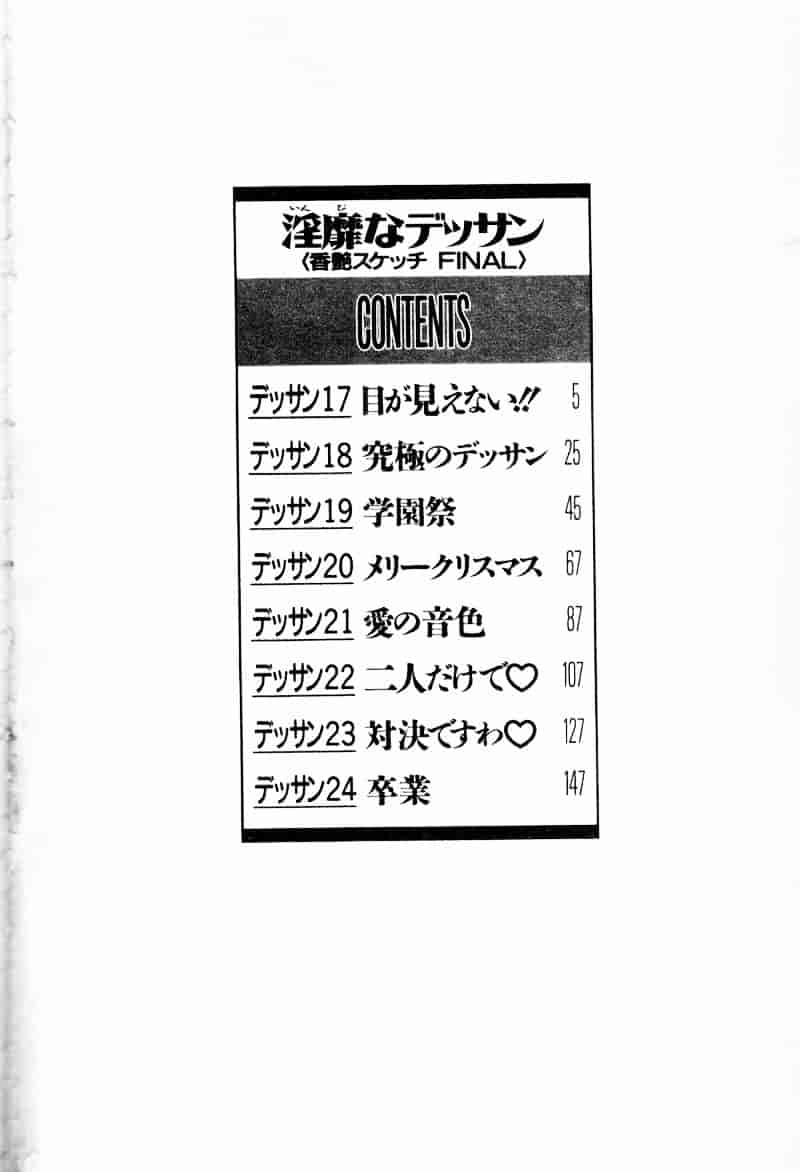 いんび
淫靡なデッサン
〈香艶スケッチ FINAL〉
CONTENTS
デッサン17 目が見えない!! 5
デッサン18 究極のデッサン 25
デッサン19 学園祭 45
デッサン20 メリークリスマス 67
デッサン21 愛の音色 87
デッサン22 二人だけで♡ 107
デッサン23 対決ですわ♡ 127
デッサン24 卒業 147